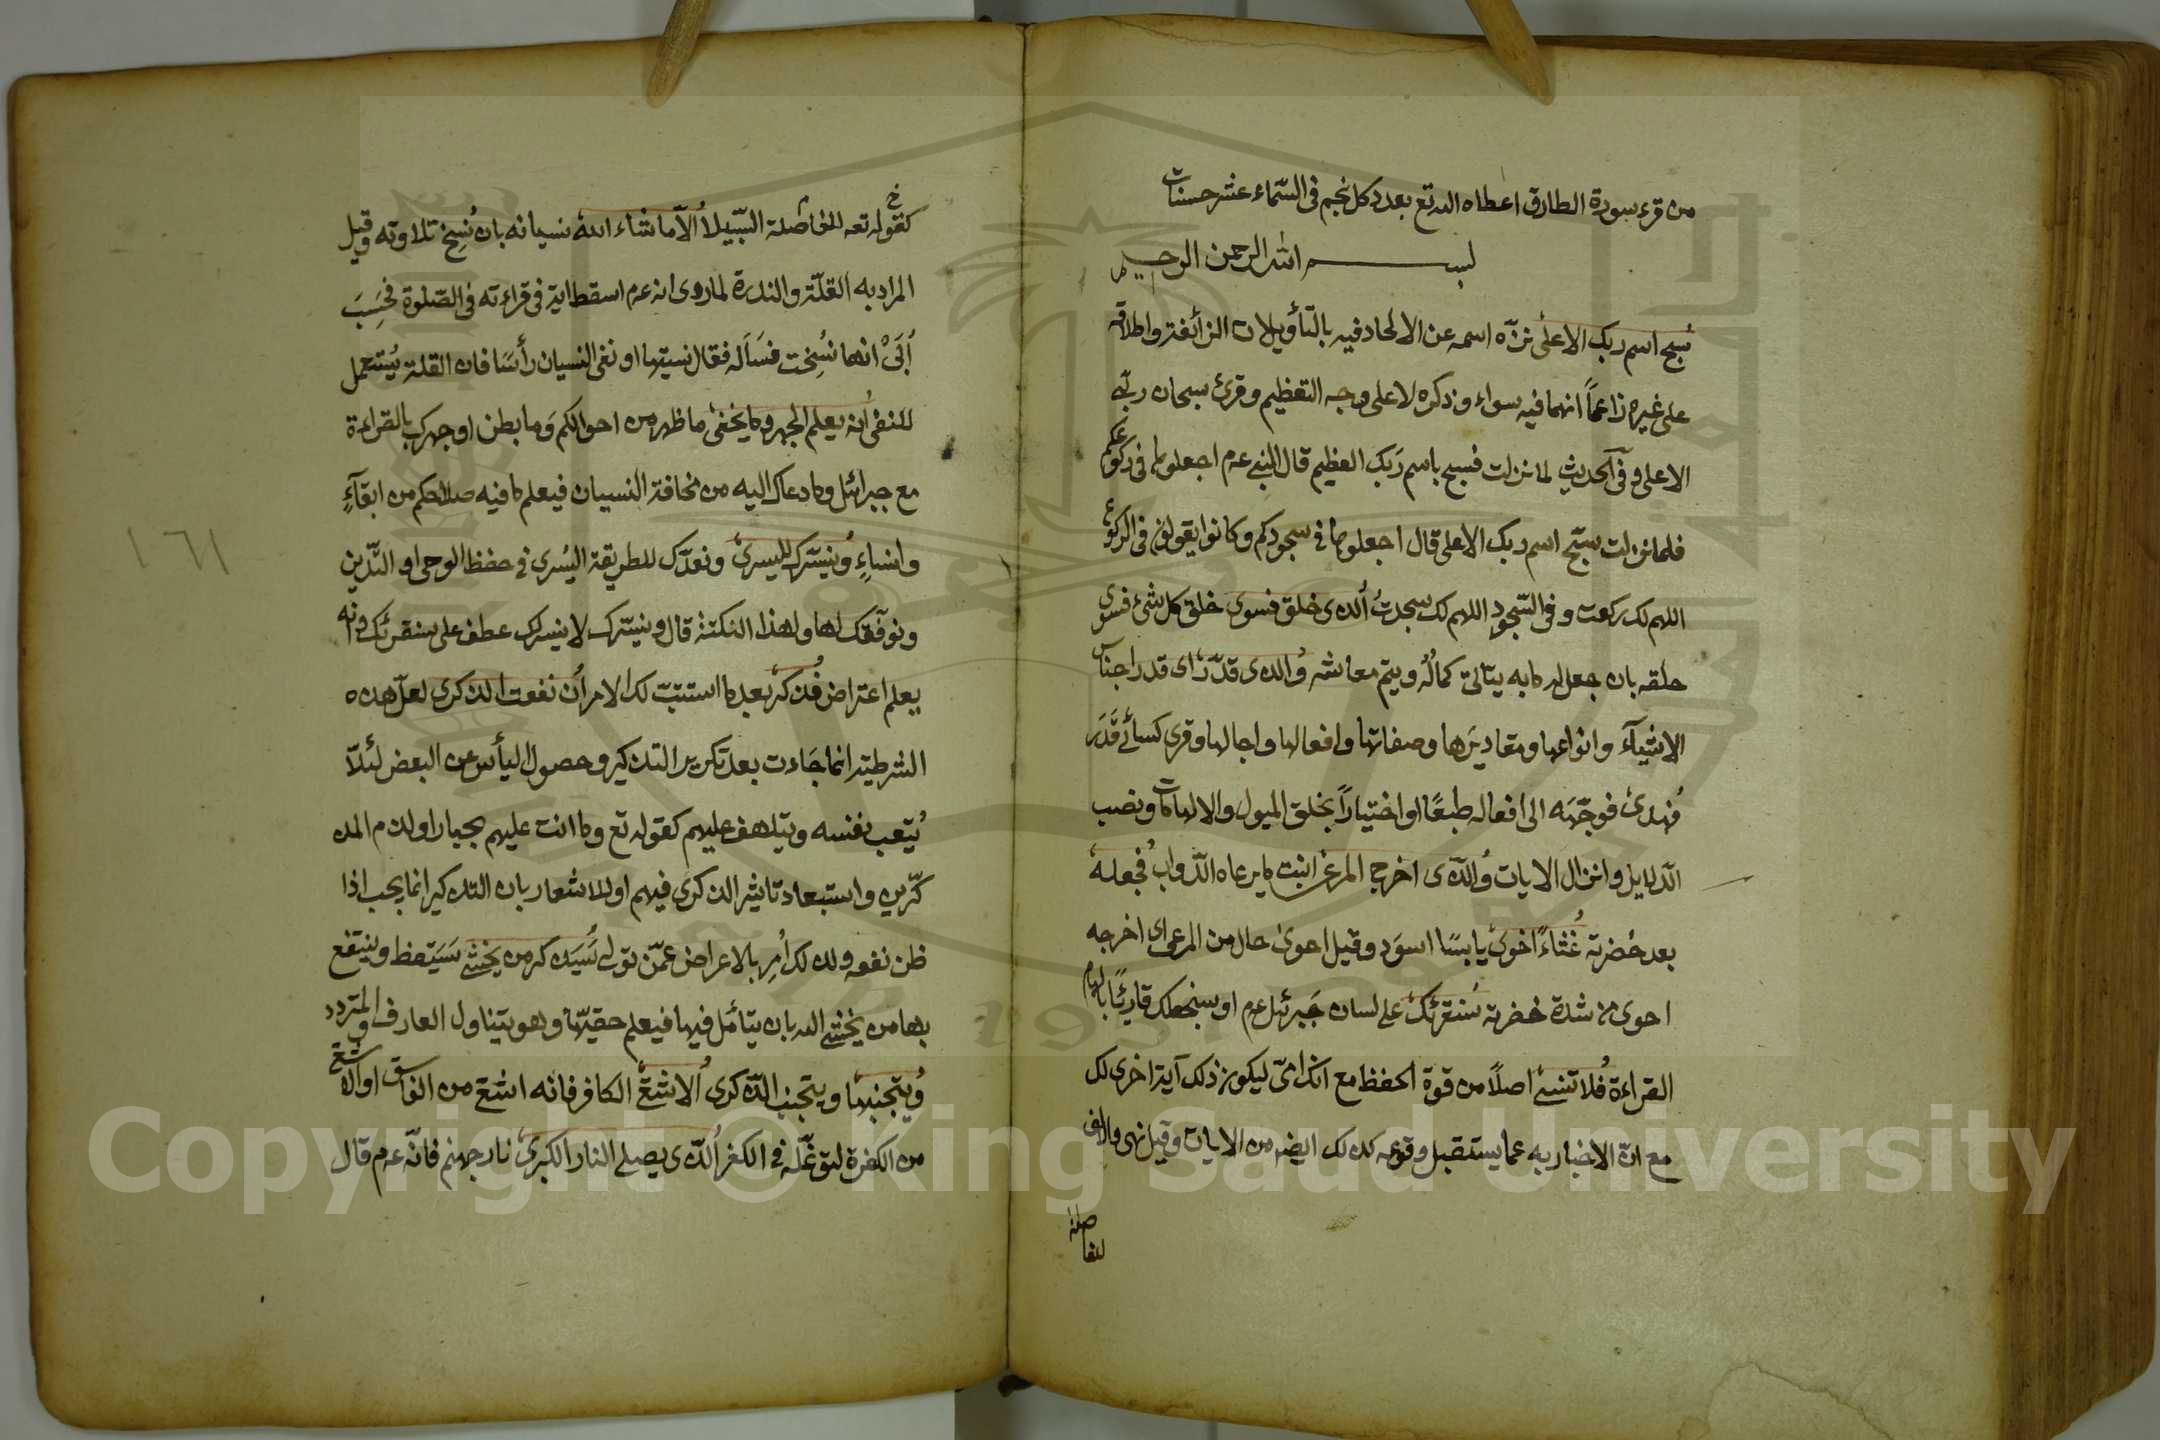 من قرء سورة الطارق اعطاه الله تع بعدد كل نجم في السّماء عشر حسنات
بسم الله الرحمن الرحيم
سبح اسم ربك الاعلى نزّه اسمه عن الالحاد فيه بالتأويلات الزائغة واطلاقه
على غيره زاعماً انهما فيه سواء وذكره لا على وجه التعظيم وقرئ سبحان ربي
الاعلى وفي الحديث لما نزلت فسبح باسم ربك العظيم قال النبي عم اجعلوها في ركوعكم
فلما نزلت سبّح اسم ربك الاعلى قال اجعلوها في سجودكم وكانوا يقولون في الركوع
اللهم لك ركعت وفي السّجود اللهم لك سجدت الذي خلق فسوى خلق كل شئ فسوى
خلقه بان جعل له ما به يتأتى كماله ويتم معاشه والذي قدّر اى قدر اجناس
الاشيآء وانواعها ومقاديرها وصفاتها وافعالها واجالها وقرى كسائي قدر
فهدى فوجّهه الى افعاله طبعًا او اختياراً بخلق الميول والالهامات ونصب
الدّلايل وانزال الايات والّذى اخرج المرعى انبت ما يرعاه الدّواب فجعله
بعد خضرته غُثاءً احوى يابسًا اسوَد وقيل احوى حال من المرعى اى اخرجه
احوى من شدة خضرته سنقرئك على لسان جبرئيل عم او سنجعلك قاريًا بالهام
القراءة فلا تنسى اصلاً من قوة الحفظ مع انك امّى ليكون ذلك آية اخرى لك
مع ان الاخبار به عما يستقبل وقوعه كذلك ايضه من الايات وقيل نهى والالف
للفاصلة
١٦١
كقوله تعه للفاصلة السّبيلا الّا ما شاء الله نسيانه بان نُسِخ تلاوته وقيل
المراد به القلّة والندرة لما روى انه عم اسقط اية في قراءته في الصّلوة فحَسِبَ
أُبَىْ انها نُسِخت فسَأله فقال نسيتها او نفى النسيان رأسًا فان القلة يُستعمل
للنفى انه يعلم الجهر وما يخفى ما ظهر من احوالكم وما بطن او جهرك بالقراءة
مع جبرائيل وما دعاك اليه من مخافة النسيان فيعلم ما فيه صلاحكم من ابقآءٍ
وانساءٍ ونيسّرك لليسرى ونعدّك للطريقة اليُسرى في حفظ الوحى او التّدين
ونوفّقك لها ولهذا النكتة قال ونيسّرك لا نيسر لك عطف على سنقرئك وانه
يعلم اعتراض فذكر بعد ما استتبّ لك الامر ان نفعت الذكرى لعل هذه
الشرطية انما جاءت بعد تكرير التذكير وحصول اليأس عن البعض لئلّا
يُتعب نفسه ويتلهف عليهم كقوله تع وما انت عليهم بجبار او لذم المذ
كّرين واستبعاد تاثير الذكرى فيهم او للاشعار بان التذكير انما يجب اذا
ظن نفعه ولذلك أُمِر بالاعراض عمّن تولى سَيَذكر من يخشى سَيَتعظ وينتفع
بها من يخشى الله بان يتأمّل فيها فيعلم حقيّتها وهو يتناول العارف والمتردد
ويتجنبها ويتجنب الذّكرى الاشقى الكافر فانه اشقى من الفاسق او الاشقى
من الكفرة لتوغّله في الكفر الّذى يصلى النار الكبرى نار جهنم فانّه عم قال
Copyright © King Saud University